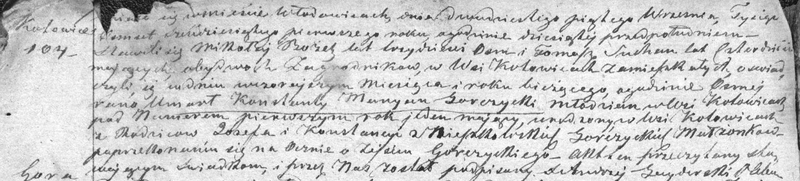 Kotowice Działo się w mieście Włodowicach, dnia dwudziestego piątego Września, Tysiąc
104. ośmset sześćdziesiątego pierwszego roku, o godzinie dziesiątej przed południem
Stawili się Mikołaj lat trzydzieści Ośm i Tomasz lat Czterdzieści
mający, obydwoch Zagrodników, w Wsi Kotowicach Zamieszkałych, oswiad
czyli, iż w dniu wczorajszym miesiąca i roku bieżącego, o godzinie Osmej
rano Umarł Konstanty Maryan Gorczycki, młodzian w Wsi Kotowicach
pod Numerem pierwszym, rok jeden mający, urodzony w Wsi Kotowicach
z Rodzicow Jozefa i Konstancyi z Gorczyckich Małzonkow
po przekonaniu się na Ocznie o Zejściu Gorczyckiego. Akt ten przeczytany sta
wającym Świadkom, i przez Nas został podpisany.
Gora